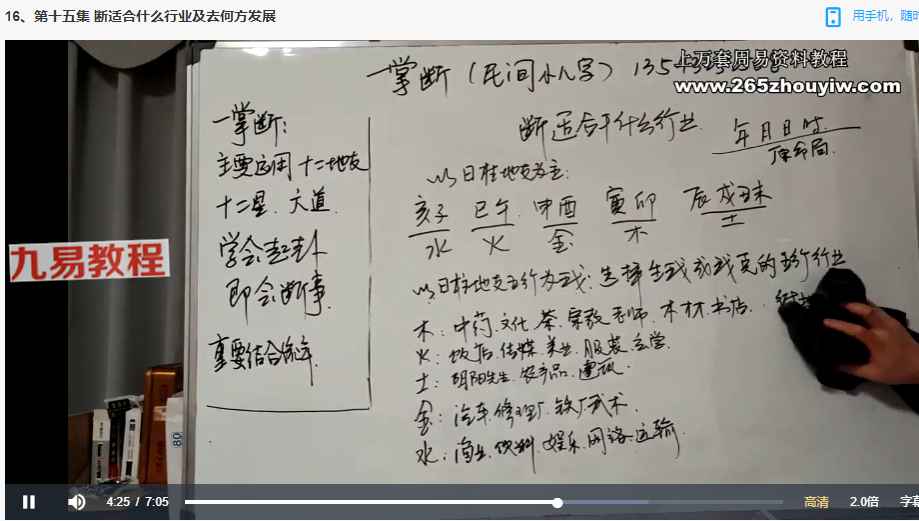 16、第十五集 断适合什么行业及去何方发展
用手机，随时
上万套周易资料教程
www.265zhouyiw.com
一掌断（民间小八字）
断适合干什么行业
年月日时
原命局
以日柱地支为主：
亥子 巳午 申酉 寅卯 辰戌丑未
水 火 金 木 土
以日柱地支五行为我：选择生我或我克的五行行业
木：中药.文化.茶.宗教.老师.木材.书店.
火：饭店.传媒.美业.服装.玄学.
土：阴阳先生.农产品.建筑.
金：汽车.修理厂.铁厂.武术.
水：渔业.饮料.娱乐.网络.运输.
一掌断：
主要应用十二地支
十二星.六道.
学会起卦
即会断事.
重要结合流年
九易教程
80
4:25 / 7:05
高清
2.0倍
字幕